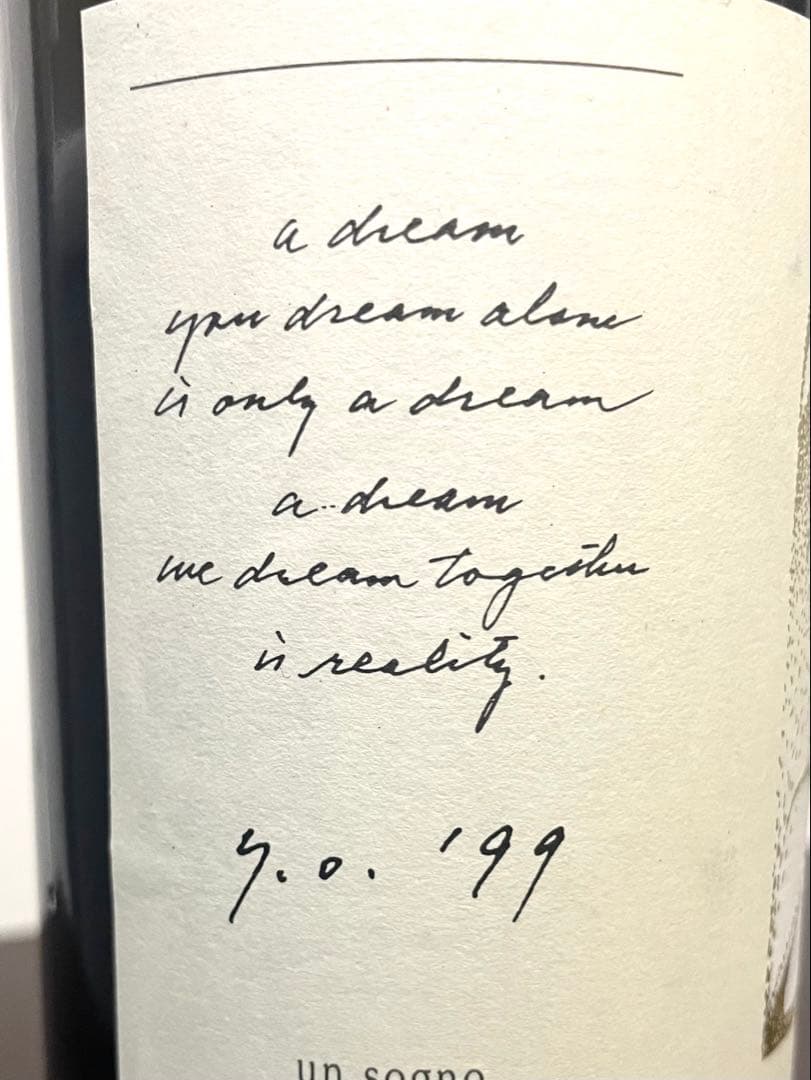 a dream
you dream alone
is only a dream
a dream
we dream together
is reality.
y.o. '99
un sogno